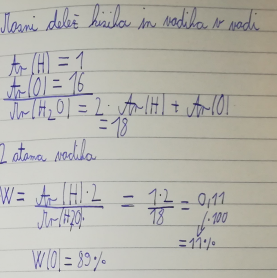 Masni delež kisika in vodika v vodi
Ar(H) = 1
Ar(O) = 16
Mr(H₂O) = 2 · Ar(H) + Ar(O)
= 18
2 atoma vodika
W = Ar(H)·2 / Mr(H₂O) = 1·2 / 18 = 0,11
/·100
= 11%
W(O) = 89%